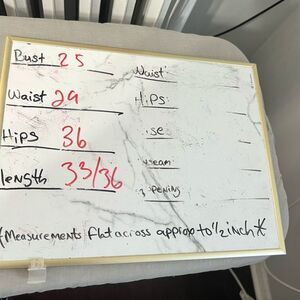 Bust 25
Waist 29
Hips 36
length 33/36
Waist
Hips
*Measurements flat across approx to 1/2 inch*